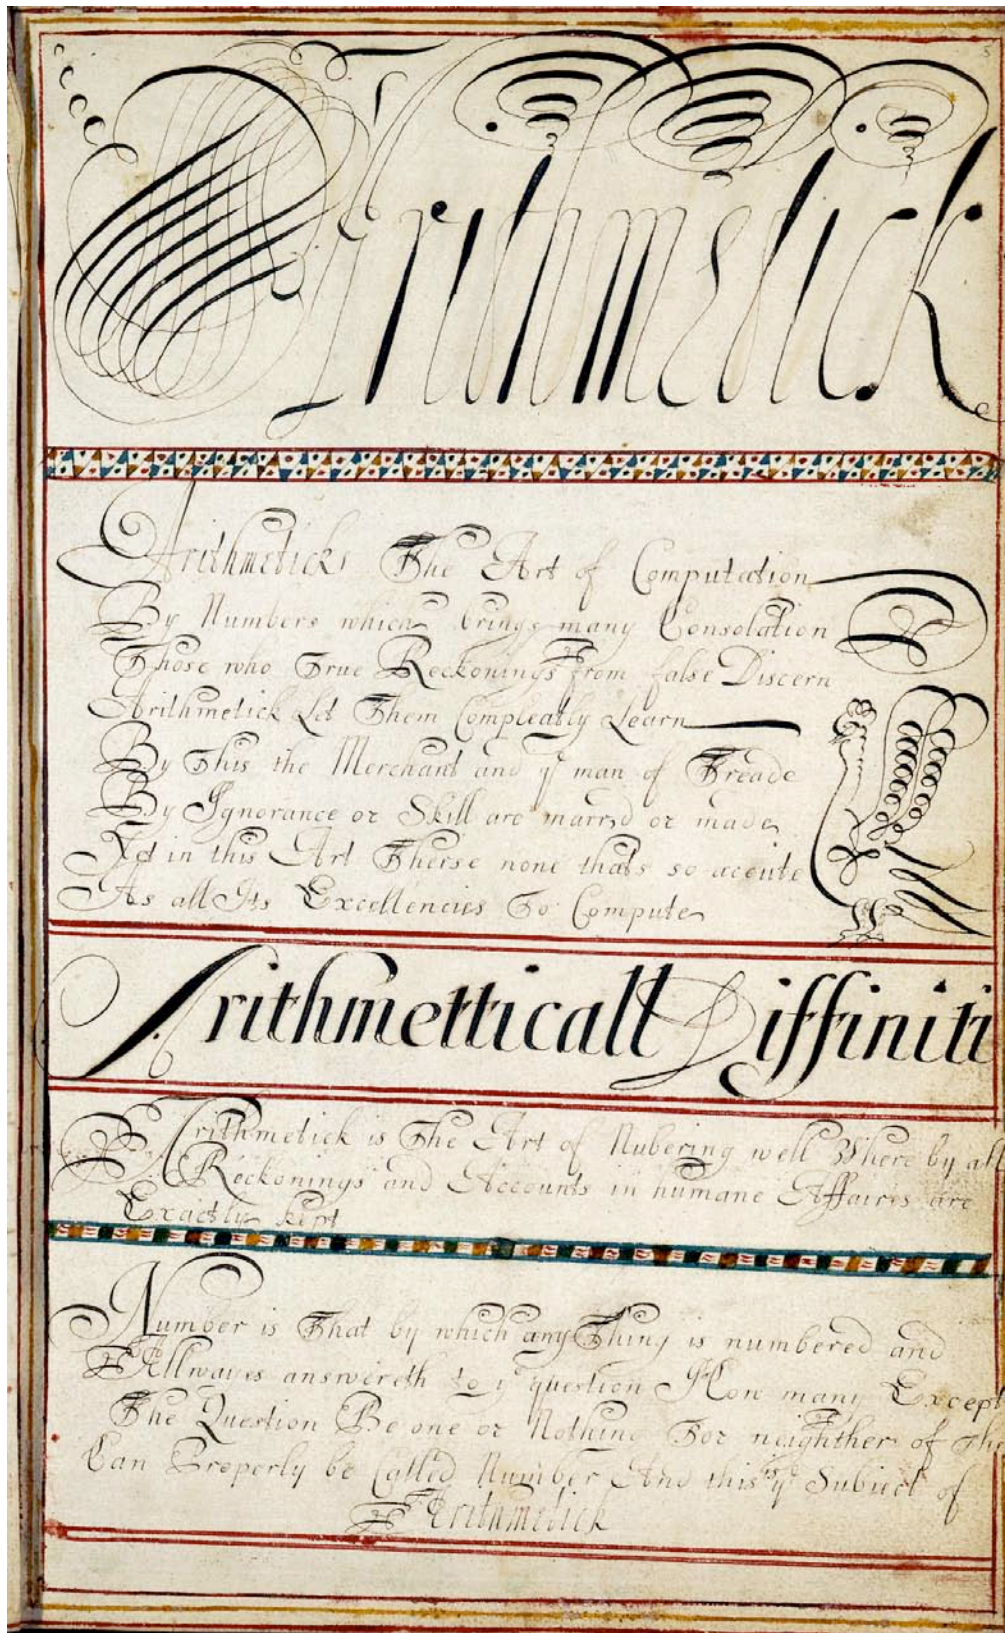 5
Arithmetick
Arithmetick The Art of Computation
By Numbers which brings many Consolation
Those who True Reckonings From false Discern
Arithmetick Let Them Compleatly Learn
By This the Merchant and ye man of Treade
By Ignorance or Skill are marrd or made
Yet in this Art Therse none thats so acute
As all Its Excellencies To Compute
Arithmetticall Diffiniti
Arithmetick is The Art of Nubering well Where by all
Reckonings and Accounts in humane Affaires are
Exactly kept
Number is That by which any Thing is numbered and
Allwayes answereth to ye question How many Except
The Question Be one or Nothing For neighther of The
Can Properly be Called Number And this is ye Subiect of
Arithmetick